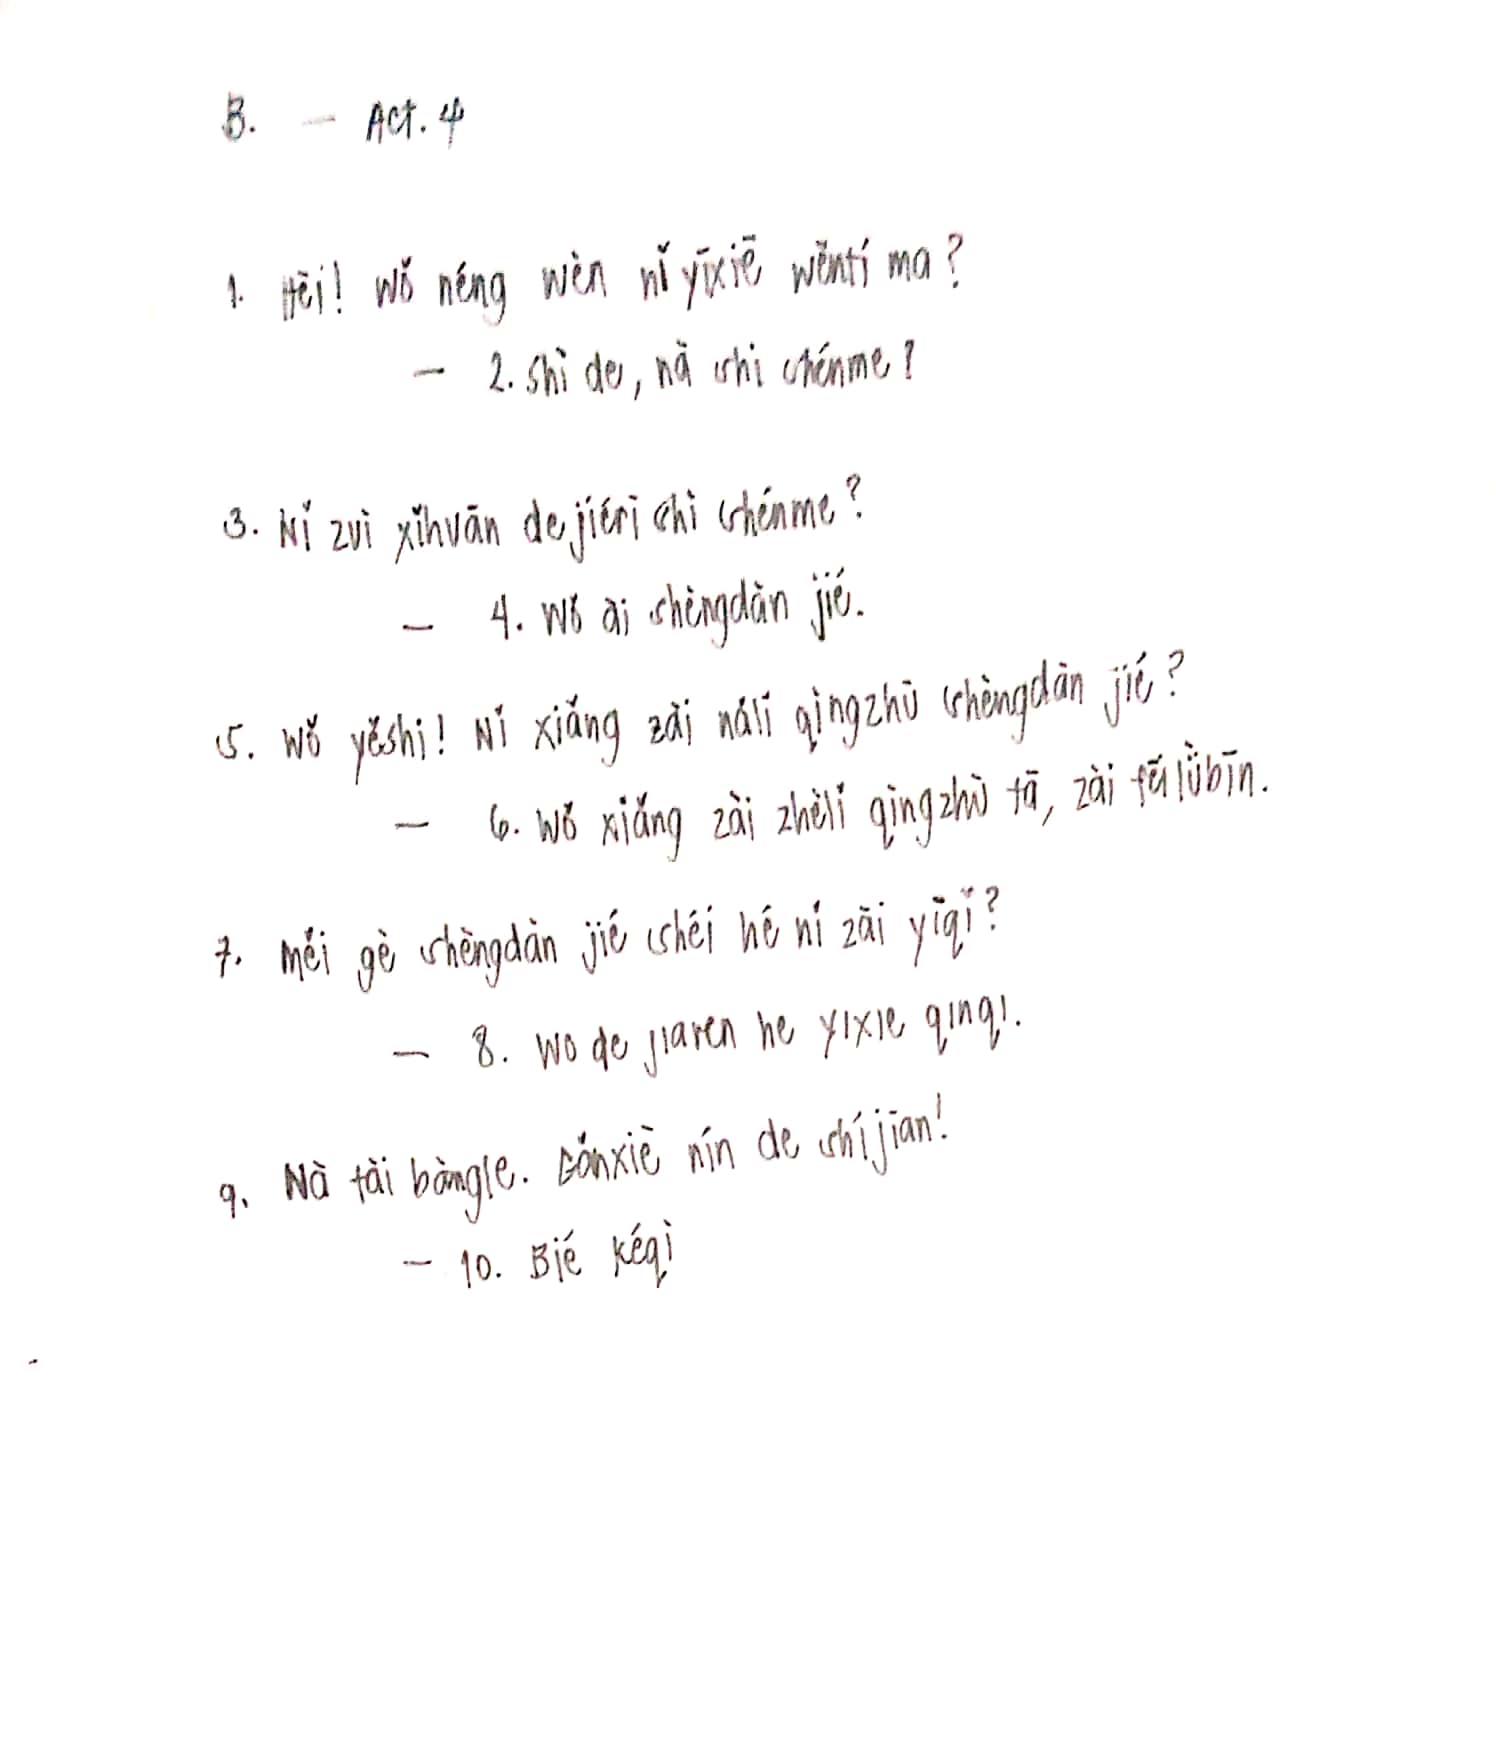 B. - Act. 4
1. Hēi! Wǒ néng wèn nǐ yīxiē wèntí ma?
- 2. Shì de, nà shì shénme?
3. Nǐ zuì xǐhuān de jiérì shì shénme?
- 4. Wǒ ài shèngdàn jié.
5. Wǒ yěshì! Nǐ xiǎng zài nǎlǐ qìngzhù shèngdàn jié?
- 6. Wǒ xiǎng zài zhèlǐ qìngzhù tā, zài fēilǜbīn.
7. Měi gè shèngdàn jié shéi hé nǐ zài yīqǐ?
- 8. Wo de jiaren he yixie qinqi.
9. Nà tài bàngle. Gǎnxiè nín de shíjian!
- 10. Bié kéqì